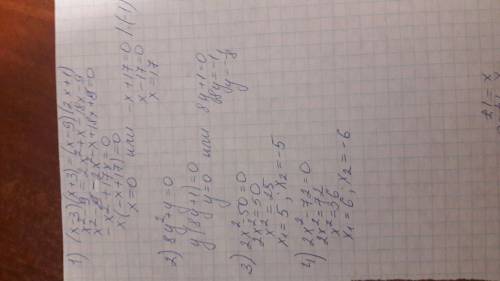 1) (x-3)(x+3)=(x-9)(2x+1)
x²-9=2x²+x-18x-9
x²-9-2x²-x+18x+9=0
-x²+17x=0
x(-x+17)=0
x=0 или -x+17=0 |·(-1)
x-17=0
x=17
2) 8y²+y=0
y(8y+1)=0
y=0 или 8y+1=0
8y=-1
3) 2x²-50=0
2x²=50
x²=25
x₁=5, x₂=-5
4) 2x²-72=0
2x²=72
x²=36
x₁=6, x₂=-6